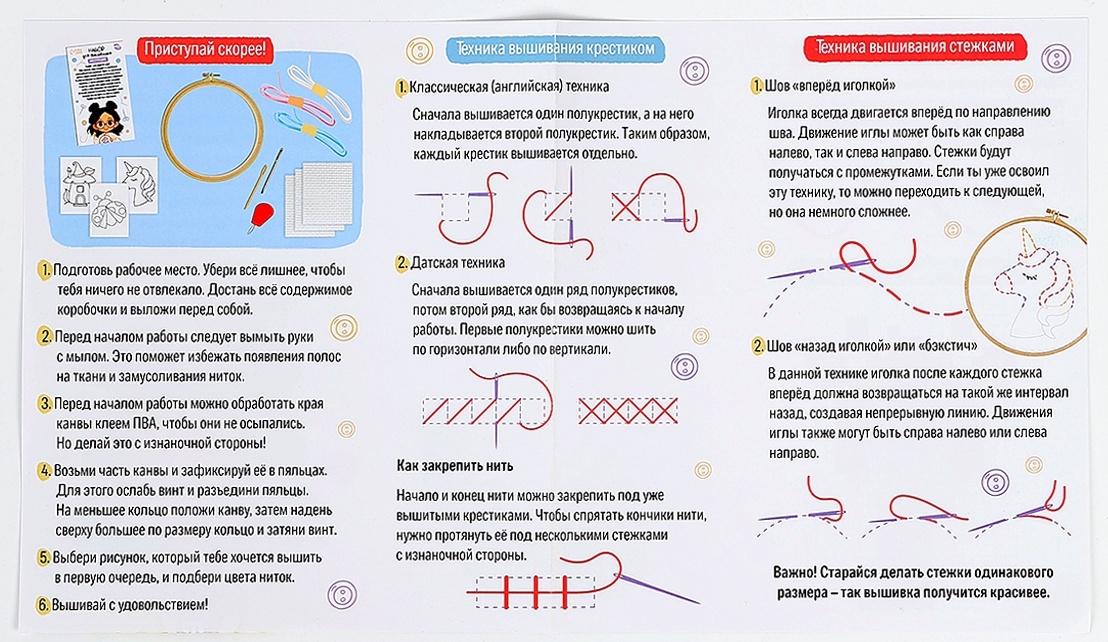 НАБОР
Приступай скорее!
1. Подготовь рабочее место. Убери всё лишнее, чтобы
тебя ничего не отвлекало. Достань всё содержимое
коробочки и выложи перед собой.
2. Перед началом работы следует вымыть руки
с мылом. Это поможет избежать появления полос
на ткани и замусоливания ниток.
3. Перед началом работы можно обработать края
канвы клеем ПВА, чтобы они не осыпались.
Но делай это с изнаночной стороны!
4. Возьми часть канвы и зафиксируй её в пяльцах.
Для этого ослабь винт и разъедини пяльцы.
На меньшее кольцо положи канву, затем надень
сверху большее по размеру кольцо и затяни винт.
5. Выбери рисунок, который тебе хочется вышить
в первую очередь, и подбери цвета ниток.
6. Вышивай с удовольствием!
Техника вышивания крестиком
1. Классическая (английская) техника
Сначала вышивается один полукрестик, а на него
накладывается второй полукрестик. Таким образом,
каждый крестик вышивается отдельно.
2. Датская техника
Сначала вышивается один ряд полукрестиков,
потом второй ряд, как бы возвращаясь к началу
работы. Первые полукрестики можно шить
по горизонтали либо по вертикали.
Как закрепить нить
Начало и конец нити можно закрепить под уже
вышитыми крестиками. Чтобы спрятать кончики нити,
нужно протянуть её под несколькими стежками
с изнаночной стороны.
Техника вышивания стежками
1. Шов «вперёд иголкой»
Иголка всегда двигается вперёд по направлению
шва. Движение иглы может быть как справа
налево, так и слева направо. Стежки будут
получаться с промежутками. Если ты уже освоил
эту технику, то можно переходить к следующей,
но она немного сложнее.
2. Шов «назад иголкой» или «бэкстич»
В данной технике иголка после каждого стежка
вперёд должна возвращаться на такой же интервал
назад, создавая непрерывную линию. Движения
иглы также могут быть справа налево или слева
направо.
Важно! Старайся делать стежки одинакового
размера – так вышивка получится красивее.